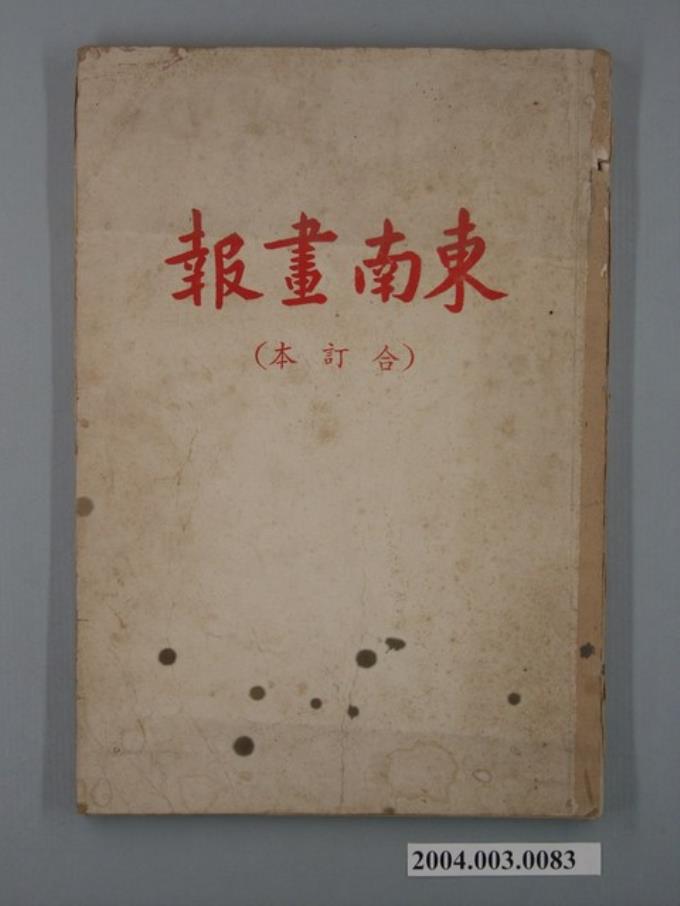 東南畫報
(合訂本)
2004.003.0083